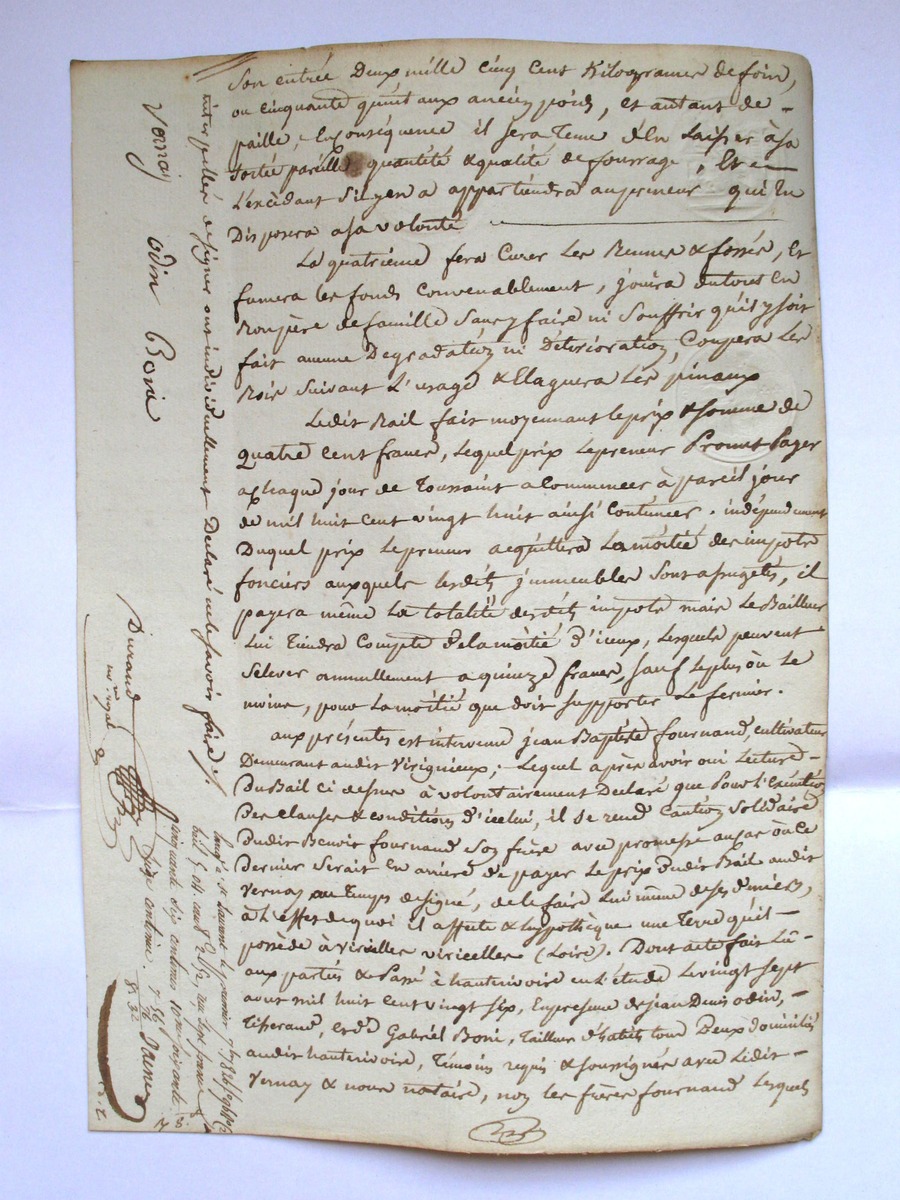 Son entrée Deux mille Cinq Cent Kilogrames de foin,
ou Cinquante quintaux ancien poids, et autant de -
paille, En Conséquence il sera Tenu d'En Laisser à sa
Sortie pareille quantité & qualité de fourrage, Et -
L'excédant S'il y en a appartiendra au preneur qui En
Disposera a sa volonté
La quatrième fera Curer Les & fossés, Et
fumera les fonds Convenablement, jouira du tout En
Bon père de famille Sans y faire ni Souffrir qu'il y soit
fait aucune Dégradation ni Détérioration, Coupera Les
Bois Suivant L'usage & Elaguera Les pinaux
Ledit Bail fait moyennant le prix & somme de
quatre Cent francs, Lequel prix Le preneur Promet Payer
a chaque jour de Toussaint a Commencer à pareil jour
de mil huit Cent vingt huit ainsi Continuer. indépendament
Duquel prix Le preneur acquittera La moitié des impots
fonciers auxquels lesdits immeubles Sont assugetis, il
payera même La totalité desdits impots mais Le Bailleur
Lui Tiendra Compte de la moitié d'iceux, Lesquels peuvent
S'elever annuellement a quinze francs, Sauf le plus ou Le
moins, pour La moitié que doit supporter Le fermier.
aux présentes est intervenu jean Baptiste fournand, cultivateur
Demeurant audit Virignieux; Lequel après avoir oui Lecture -
Du Bail Ci dessus à volontairement Déclaré que Pour l'Exécution
Des Clauses & Conditions D'icelui, il se rend Caution Solidaire
Dudit Benoit fournand Son frère avec promesse au cas où Ce
Dernier Serait En arriere de payer Le prix Dudit Bail audit
Vernay au Temps designé, de le faire Lui même de ses deniers,
à L'effet de quoi il affecte & hypothèque une Terre qu'il -
possède à Viricelles (Loire). Dont acte fait Lû -
aux parties & Passé à hauterivoire en L'étude Le vingt sept
aout mil huit Cent vingt Six, En présence de jean Denis odin, -
Tisserand, et de Gabriel Boni, Tailleur d'habits tous Deux domiciliés
audit hauterivoire, Témoins requis & soussignés avec Ledit -
Vernay & nous notaire, non les frères fournand Lesquels
interpellés de signer ont individuellement Déclaré ne le savoir faire
Vernay odin Boni
Durand
nre royal